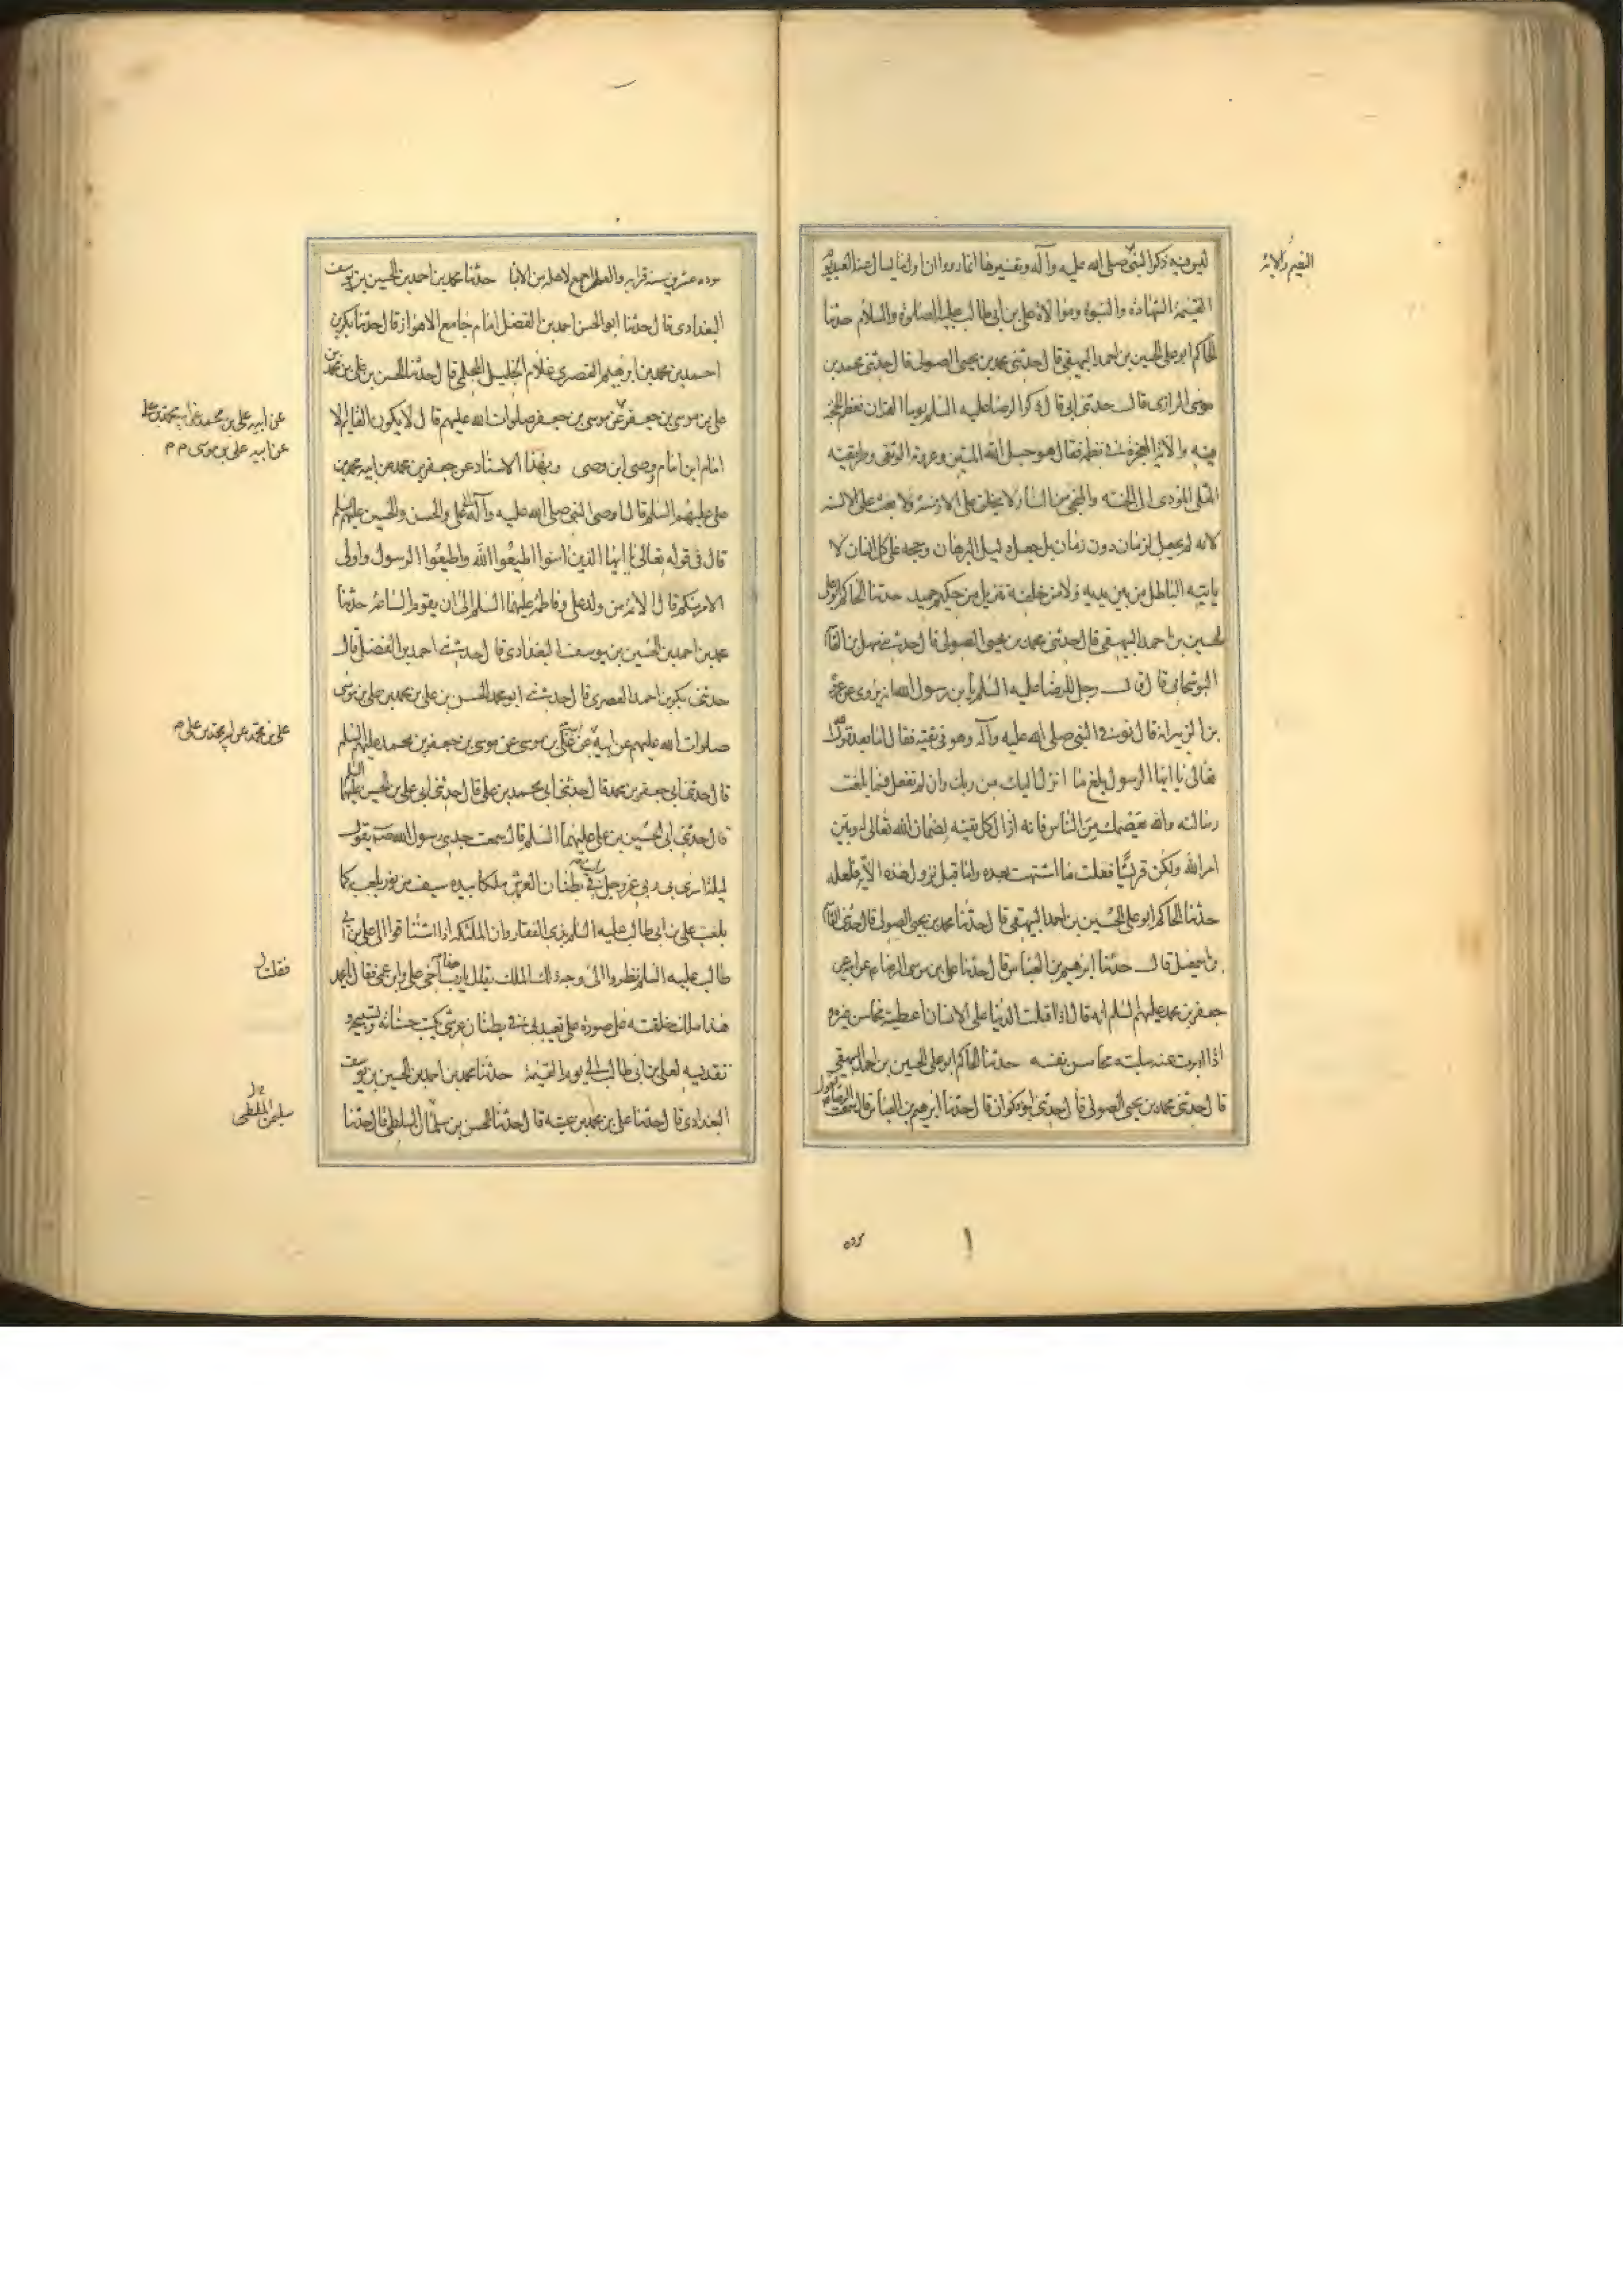 ليس فيه ذكر النبي صلى الله عليه وآله وتفسيرها انما رووا ان اول ما يسال عنه العبد يوم
القيمة الشهادة والنبوة وموالاة علي بن ابي طالب عليه الصلوة والسلام حدثنا
الحاكم ابو علي الحسين بن احمد البيهقي قال حدثني محمد بن يحيى الصولي قال حدثني محمد بن
موسى الرازي قال حدثني ابي قال ذكر الرضا عليه السلم يوما القران فعظم الحجة
فيه والاية المعجزة في نظمه فقال هو حبل الله المتين وعروته الوثقى وطريقته
المثلى المؤدي الى الجنة والمنجي من النار لا يخلق على الازمنة ولا يغث على الالسنة
لانه لم يجعل لزمان دون زمان بل جعل دليل البرهان وحجة على كل انسان لا
ياتيه الباطل من بين يديه ولا من خلفه تنزيل من حكيم حميد حدثنا الحاكم ابو علي
الحسين بن احمد البيهقي قال حدثني محمد بن يحيى الصولي قال حدثني سهل بن القاسم
النوشجاني قال قال رجل للرضا عليه السلم يا بن رسول الله انه يروى عن عروة
بن الزبير انه قال توفي النبي صلى الله عليه وآله وهو في تقية فقال اما بعد قول الله
تعالى يا ايها الرسول بلغ ما انزل اليك من ربك وان لم تفعل فما بلغت
رسالته والله يعصمك من الناس فانه ازال كل تقية بضمان الله تعالى له وبين
امر الله ولكن قريشا فعلت ما اشتهت بعده واما قبل نزول هذه الآية فلعله
حدثنا الحاكم ابو علي الحسين بن احمد البيهقي قال حدثنا محمد بن يحيى الصولي قال حدثني القاسم
بن اسمعيل قال حدثنا ابرهيم بن العباس قال حدثنا علي بن موسى الرضا عن ابيه عن
جعفر بن محمد عليهم السلم انه قال اذا اقبلت الدنيا على الانسان اعطته محاسن غيره
اذا ادبرت عنه سلبته محاسن نفسه حدثنا الحاكم ابو علي الحسين بن احمد البيهقي
قال حدثني محمد بن يحيى الصولي قال حدثني ابو ذكوان قال حدثنا ابرهيم بن العباس قال سمعت الرضا يقول
مودة عشرين سنة قرابة والعلم اجمع لاهله من الابا حدثنا محمد بن احمد بن الحسين بن يوسف
البغدادي قال حدثنا ابو الحسن احمد بن الفضل امام جامع الاهواز قال حدثنا بكر بن
احمد بن محمد بن ابرهيم القصري غلام الخليل المحلمي قال حدثنا الحسن بن علي بن محمد بن
علي بن موسى بن جعفر عن موسى بن جعفر صلوات الله عليهم قال لا يكون القايم الا
امام ابن امام وصي ابن وصي وبهذا الاسناد عن جعفر بن محمد عن ابيه محمد بن
علي عليهم السلم قال اوصى النبي صلى الله عليه وآله الى علي والحسن والحسين عليهم السلم
قال في قوله تعالى يا ايها الذين امنوا اطيعوا الله واطيعوا الرسول واولى
الامر منكم قال الائمة من ولد علي وفاطمة عليهما السلم الى ان يقوم الساعة حدثنا
محمد بن احمد بن الحسين بن يوسف البغدادي قال حدثني احمد بن الفضل قال
حدثني بكر بن احمد القصري قال حدثني ابو محمد الحسن بن علي بن محمد بن علي بن موسى
صلوات الله عليهم عن ابيه عن علي بن موسى عن موسى بن جعفر بن محمد عليهم السلم
قال حدثني ابي جعفر بن محمد قال حدثني ابي محمد بن علي قال حدثني ابي علي بن الحسين عليهما السلم
قال حدثني ابي الحسين بن علي عليهما السلم قال سمعت جدي رسول الله يقول
ليلة اسرى بي ربي عز وجل رايت في بطنان العرش ملكا بيده سيف من نور يلعب كما
يلعب علي بن ابي طالب عليه السلم بذي الفقار وان الملئكة اذا اشتاقوا الى علي بن ابي
طالب عليه السلم نظروا الى وجه ذلك الملك فقلت يا رب هذا اخي علي وابن عمي فقال يا محمد
هذا ملك خلقته على صورة علي يعبدني في بطنان عرشي يكتب حسناته وتسبيحه و
تقديسه لعلي بن ابي طالب الى يوم القيمة حدثنا محمد بن احمد بن الحسين بن يوسف
البغدادي قال حدثنا علي بن محمد بن عيينة قال حدثنا الحسن بن سليمان الملطي قال حدثنا
عن ابيه علي بن محمد عن ابيه محمد بن علي
عن ابيه علي بن موسى م م
علي بن محمد عن ابيه محمد بن علي م
فقلت
سليمن الملطي